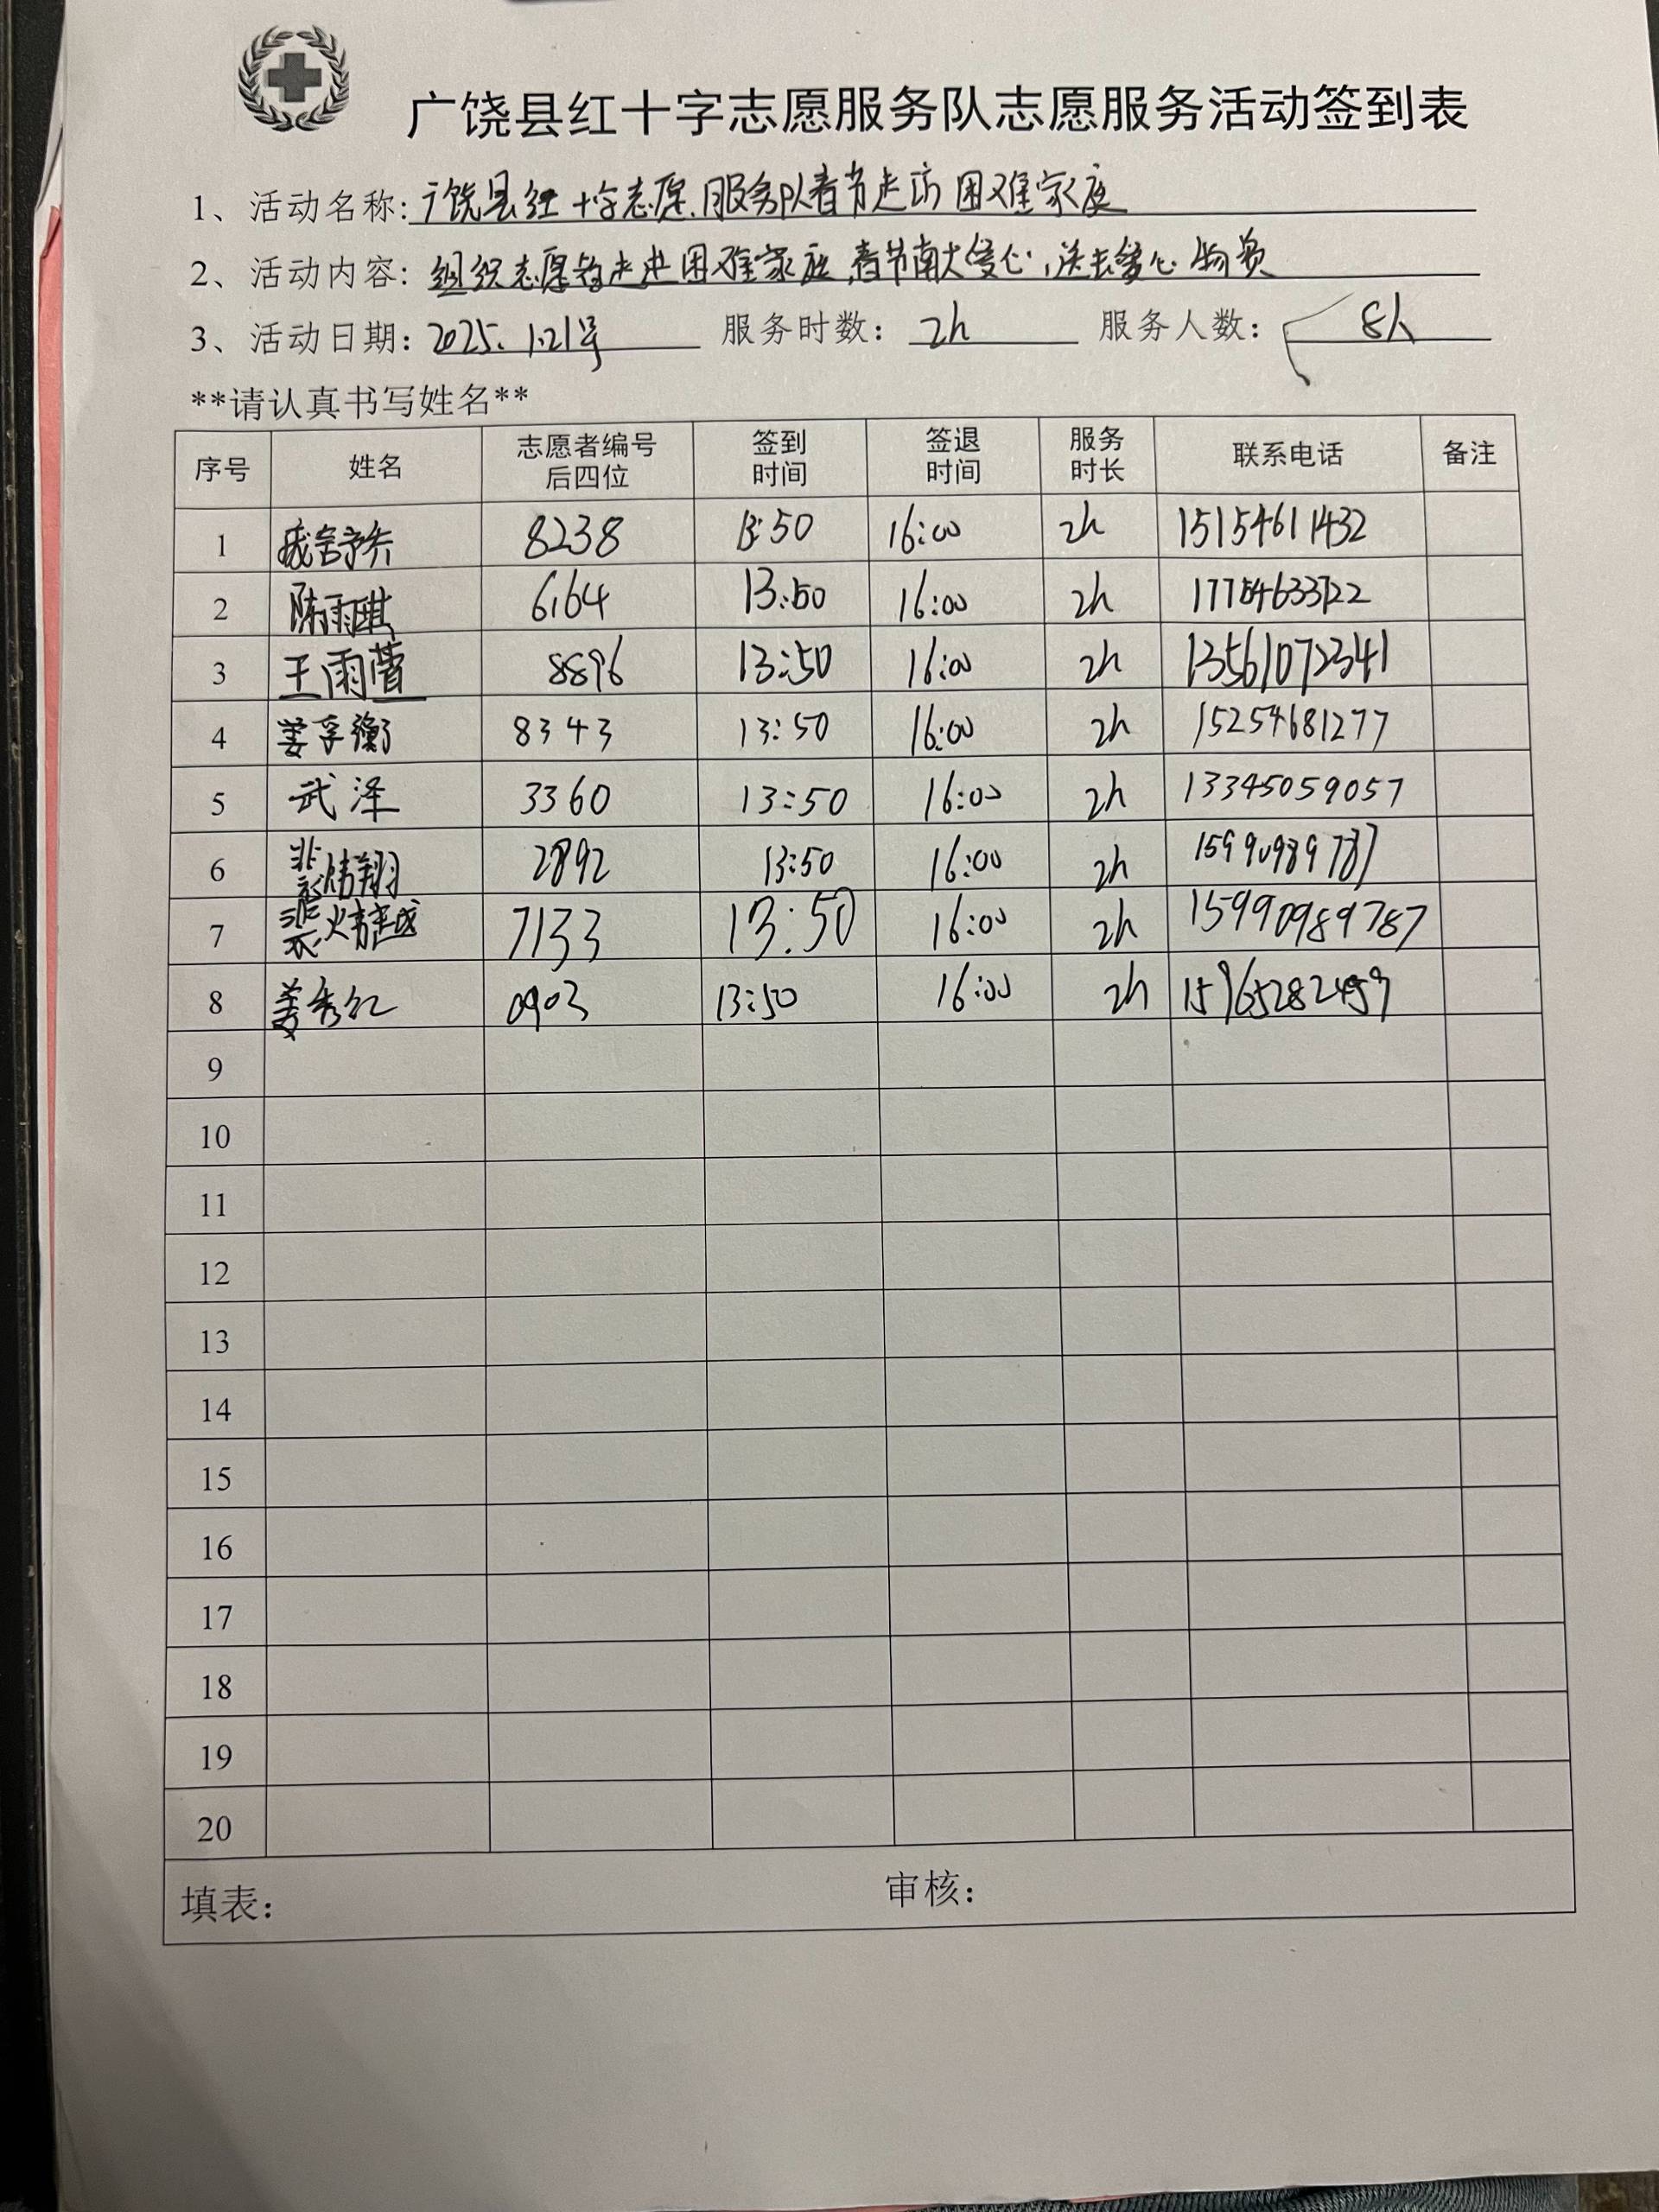 广饶县红十字志愿服务队志愿服务活动签到表
1、活动名称:广饶县红十字志愿服务队春节走访困难家庭
2、活动内容:组织志愿者走进困难家庭,春节献爱心,送去爱心物资
3、活动日期:2025.1.21号 服务时数:2h 服务人数:8人
**请认真书写姓名**
序号 姓名 志愿者编号后四位 签到时间 签退时间 服务时长 联系电话 备注
1 8238 13:50 16:00 2h 15154611432
2 陈雨琪 6164 13:50 16:00 2h
3 王雨萱 8896 13:50 16:00 2h 13561072341
4 姜孚衡 8343 13:50 16:00 2h 15254681277
5 武泽 3360 13:50 16:00 2h 13345059057
6 裴炜翔 2892 13:50 16:00 2h 15990989787
7 裴炜越 7133 13:50 16:00 2h 15990989787
8 姜秀红 0903 13:50 16:00 2h
9
10
11
12
13
14
15
16
17
18
19
20
填表: 审核: